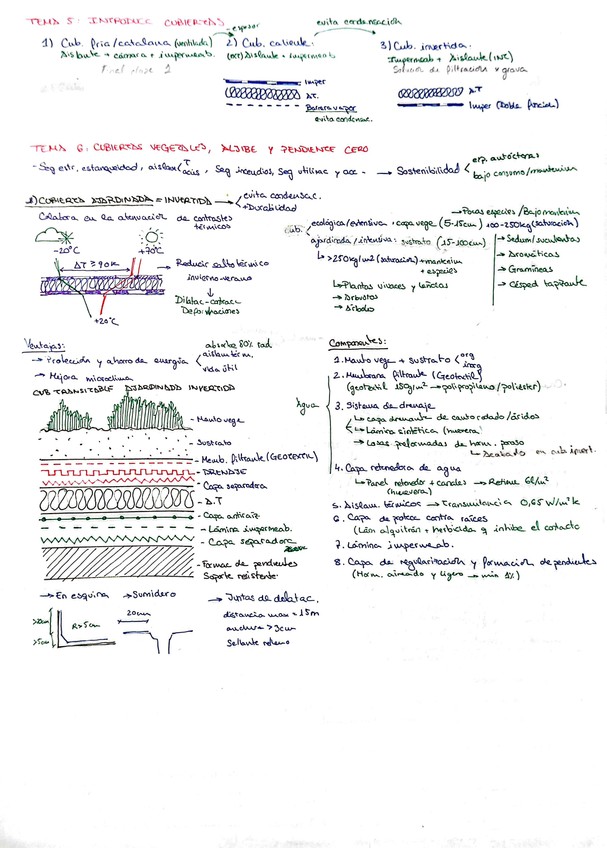 TEMA 5: INTRODUCC CUBIERTAS
espesor
evita condensación
1) Cub. fría/catalana (ventilada)
Aislante + cámara + impermeab.
Final clase 2
2) Cub. caliente.
(ext) Aislante + impermeab
Imper
AT.
Barrera vapor
evita condensac.
3) Cub. invertida.
Impermeab + Aislante (INT)
filtración x grava
AT
Imper (doble función)
TEMA 6: CUBIERTAS VEGETALES, ALJIBE Y PENDIENTE CERO
- Seg estr, estanqueidad, aislam (T acús, Seg incendios, Seg utilizac y acc - → Sostenibilidad
esp. autóctonas
bajo consumo/mantenim
CUBIERTA AJARDINADA = INVERTIDA →
evita condensac.
+ Durabilidad
Colabora en la atenuación de contrastes
térmicos
-20°C
+70°C
ΔT ≥ 90K
+20°C
→ Reducir salto térmico
invierno-verano
Dilatac-contracc
Deformaciones
cub.
ecológica/extensiva: capa vege (5-15cm) 100-250kg (saturación)
→ Pocas especies / Bajo mantenim
→ Sedum/suculentas
→ Aromáticas
→ Gramíneas
→ Césped tapizante
ajardinada/intensiva: sustrato (15-100cm)
>250kg/m2 (saturación) + mantenim
+ especies
→ Plantas vivaces y leñosas
→ Arbustos
→ Árboles
Ventajas:
→ Protección y ahorro de energía
absorbe 80% rad
aislam térm.
vida útil
→ Mejora microclima
CUB TRANSITABLE AJARDINADA INVERTIDA
- Manto vege
Sustrato
- Memb. filtrante (GEOTEXTIL)
- DRENAJE
- Capa separadora
- A.T
- Capa antiraíz
- Lámina impermeab.
- Capa separadora
- Formac de pendientes
Soporte resistente
→ En esquina
→ Sumidero
R>5cm
>5cm
20cm
→ Juntas de dilatac.
distancia max = 15m
anchura > 3cm
Sellante relleno
Componentes:
1. Manto vege + sustrato
org
inorg
2. Membrana filtrante (Geotextil)
(geotextil 150g/m² → polipropileno/poliéster)
Agua
3. Sistema de drenaje
→ capa drenante de canto rodado/áridos
→ Lámina sintética (huevera)
→ Losas preformadas de horm. poroso
→ Acabado en cub invert.
4. Capa retenedora de agua
→ Panel retenedor + canales → Retiene 6l/m²
(huevera)
5. Aislam. térmicos → Transmitancia 0,65 W/m²K
6. Capa de protecc contra raíces
(Lám alquitrán + herbicida q inhibe el contacto
7. Lámina impermeab.
8. Capa de regularización y formación de pendientes
(Horm. aireado y ligero → min 1%)